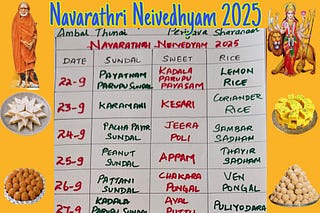 Navarathri Neivedhyam 2025
Ambal Thunai Periyava Sharanam
NAVARATHRI NEIVEDYAM 2025
DATE SUNDAL SWEET RICE
22-9 PAYATHAM PARUPU SUNDAL KADALA PARUPU PAYASAM LEMON RICE
23-9 KARAMANI KESARI CORIANDER RICE
24-9 PACHA PAYIR SUNDAL JEERA POLI SAMBAR SADHAM
25-9 PEANUT SUNDAL APPAM THAYIR SADHAM
26-9 PATTANI SUNDAL CHAKARA PONGAL VEN PONGAL
27-9 KADALA PARUPU SUNDAL AVAL PUTTU PULIYODARA